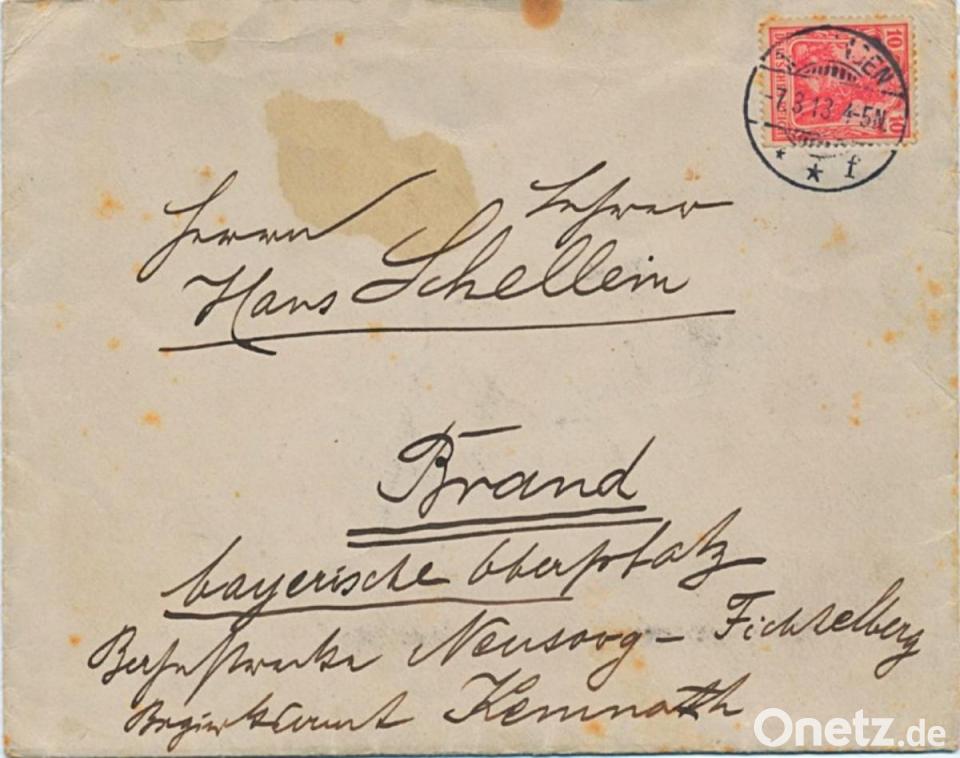 10 10
7.3.13. 4-5N.
* * f
Herrn Lehrer
Hans Schellein
Brand
bayerische Oberpfalz
Bahnstrecke Neusorg - Fichtelberg
Bezirksamt Kemnath
Onetz.de